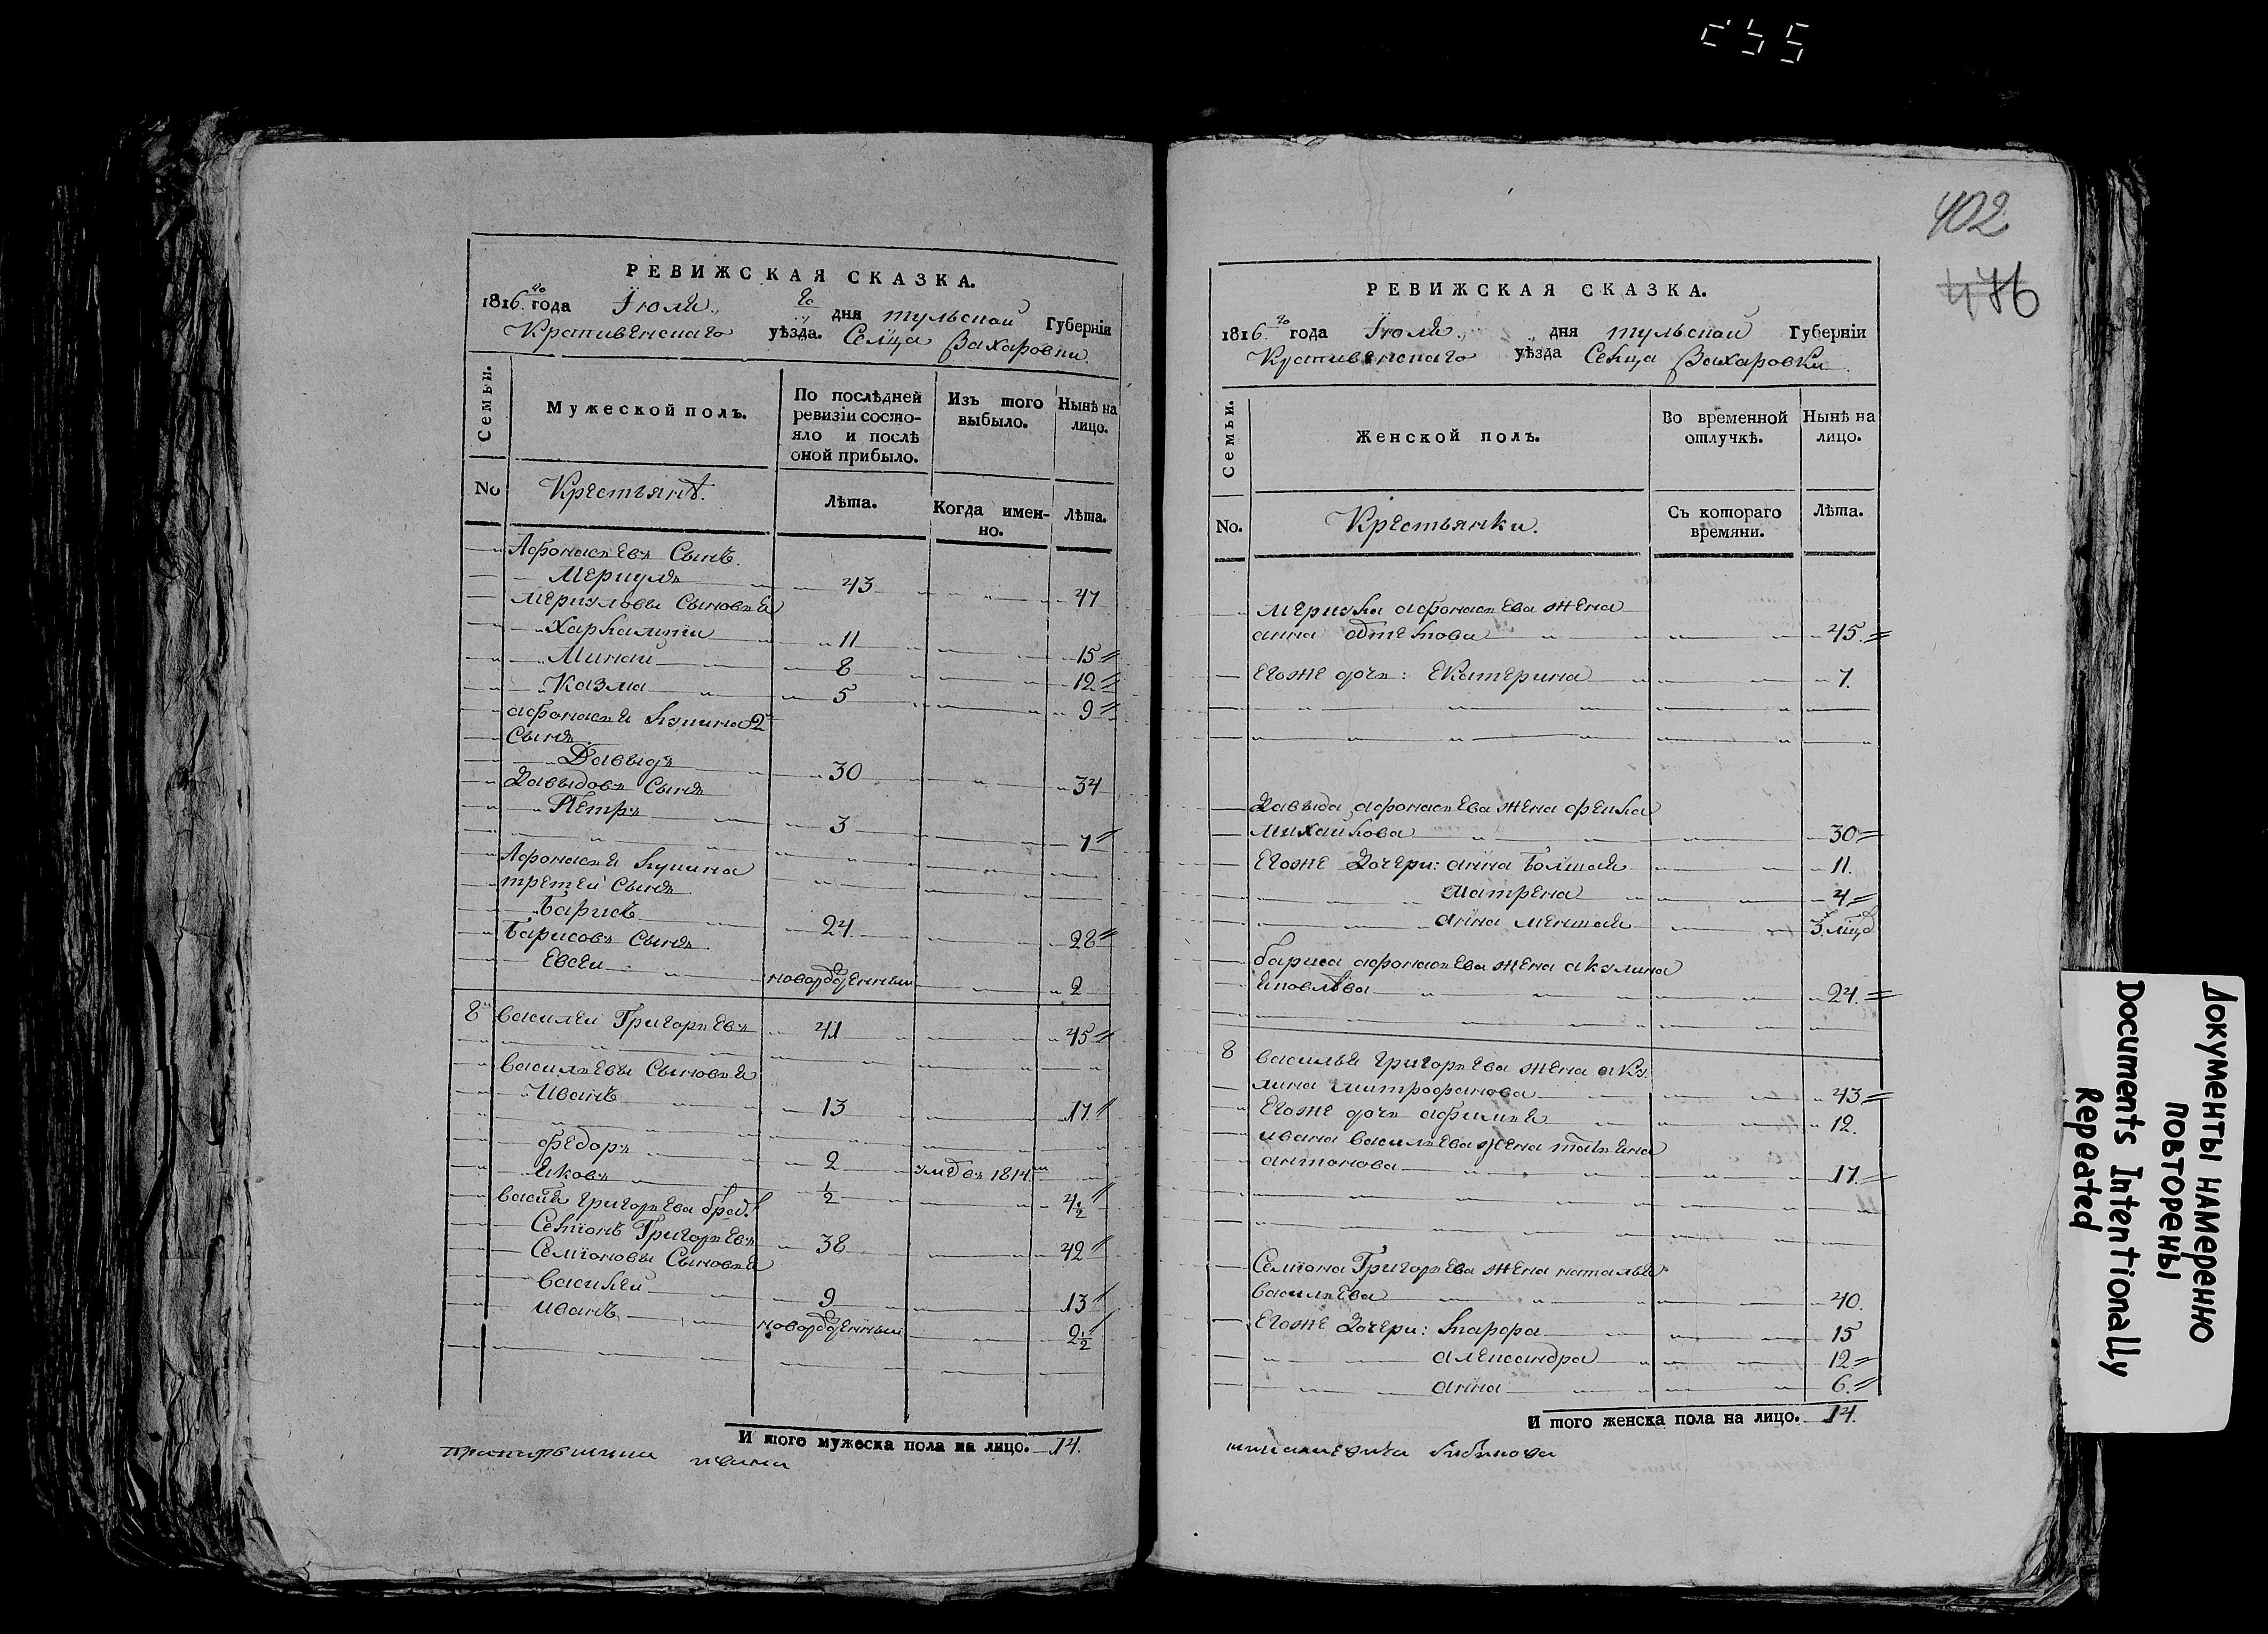 402
486
РЕВИЖСКАЯ СКАЗКА.
1816.го года Iюля " дня тульской Губернiи
Крапивенскаго уѣзда. Селца Захаровки
Семьи.
Мужеской полъ.
По послѣдней ревизiи состояло и послѣ оной прибыло.
Изъ того выбыло.
Нынѣ на лицо.
No
Крестьянѣ.
Лѣта.
Когда именно.
Лѣта.
Афонасьевъ Сынъ
Меркулъ 43 47
меркуловы Сыновья
Харлампи 11 15
Минай 8 12
Казма 5 9
афонасья лукина 2
Сынъ
Давыдъ 30 34
Давыдовъ Сынъ
Петръ 3 7
Афонасья лукина
третей Сынъ
Барисъ 24 28
Барисовъ Сынъ
Евсеи новорожденныи 2
8 василеи Григорьевъ 41 45
васильевы Сыновья
Иванъ 13 17
федоръ 2 1814
Яковъ 1/2 4 1/2
васил. григорьева брат.
Семiонъ Григорьевъ 38 42
Семiоновы Сыновья
василей 9 13
иванъ новорожденныи 2 1/2
И того мужеска пола на лицо. 14.
ивана
РЕВИЖСКАЯ СКАЗКА.
1816го года Iюля " дня тульской Губернiи
Крапивенскаго уѣзда Селца Захаровки
Семьи.
Женской полъ.
Во временной отлучкѣ.
Нынѣ на лицо.
No.
Крестьянки.
Съ котораго времяни.
Лѣта.
меркула афонасьева жена
анна 45.
Егоже дочь: Екатерина 7.
Давыда афонасьева жена фекла
михайлова 30
Егоже Дочери: анна болшая 11.
матрена 4
анна меншая 3.
бариса афонасьева жена акулина
яковлева 24.
8 василья григорьева жена аку
лина митрофанова 43
Егоже дочь афимья 12.
ивана васильева жена татьяна
антонова 17.
Семiона Григорьева жена наталья
васильева 40.
Егоже Дочери: марфа 15
александра 12
анна 6.
И того женска пола на лицо. 14.
Документы намеренно
повторены
Documents Intentionally
Repeated